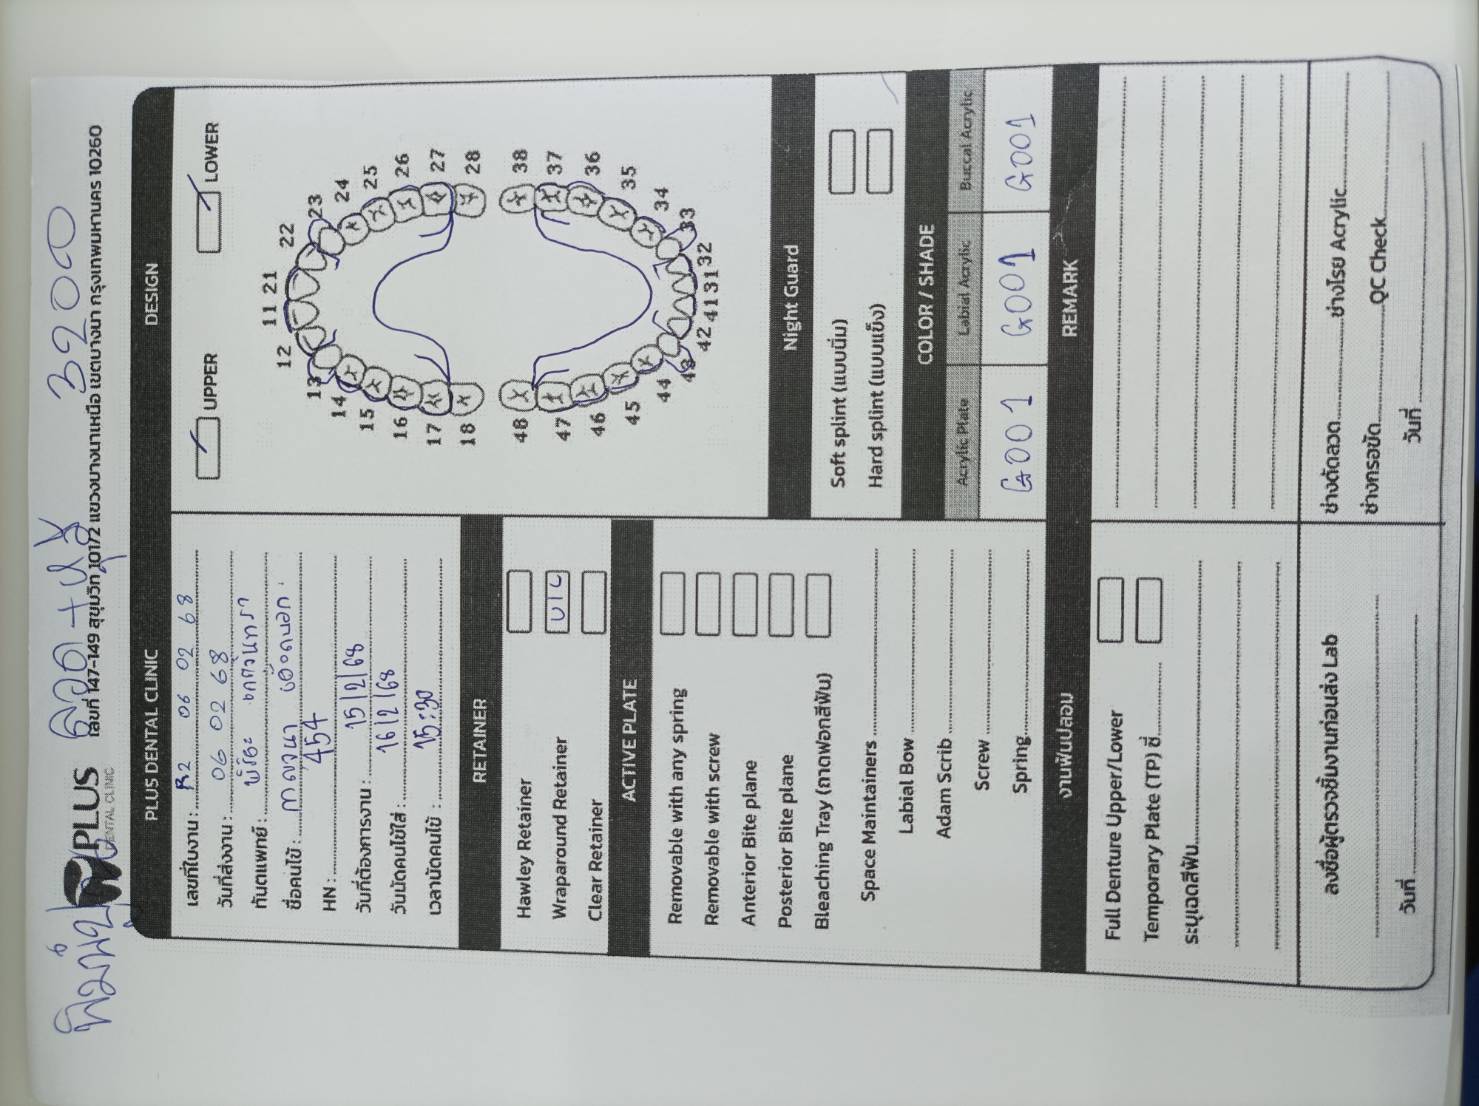 3200
PLUS
DENTAL CLINIC
เลขที่ 147-149 สุขุมวิท 101/2 แขวงบางนาเหนือ เขตบางนา กรุงเทพมหานคร 10260
PLUS DENTAL CLINIC
เลขที่ใบงาน : R2 06 02 68
วันที่ส่งงาน : 06 02 68
ทันตแพทย์ :
ชื่อคนไข้ :
HN : 454
วันที่ต้องการงาน : 15/2/68
วันนัดคนไข้ใส่ : 16/2/68
เวลานัดคนไข้ : 15:30
RETAINER
Hawley Retainer
Wraparound Retainer U/L
Clear Retainer
ACTIVE PLATE
Removable with any spring
Removable with screw
Anterior Bite plane
Posterior Bite plane
Bleaching Tray (ถาดฟอกสีฟัน)
Space Maintainers
Labial Bow
Adam Scrib
Screw
Spring
งานฟันปลอม
Full Denture Upper/Lower
Temporary Plate (TP) ซี่
ระบุเฉดสีฟัน
ลงชื่อผู้ตรวจชิ้นงานก่อนส่ง Lab
วันที่
DESIGN
UPPER LOWER
11 21
12 22
13 23
14 24
15 25
16 26
17 27
18 28
48 38
47 37
46 36
45 35
44 34
43 33
42 41 31 32
Night Guard
Soft splint (แบบนิ่ม)
Hard splint (แบบแข็ง)
COLOR / SHADE
Acrylic Plate Labial Acrylic Buccal Acrylic
G001 G001 G001
REMARK
ช่างดัดลวด ช่างโรย Acrylic
ช่างกรอขัด QC Check
วันที่